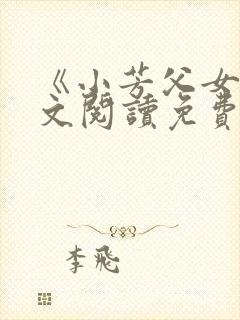 《小芳父女
文閱讀免費
李飛